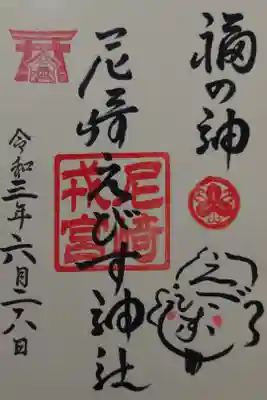 福の神
尼崎えびす神社
尼崎
戎宮
令和三年六月二八日